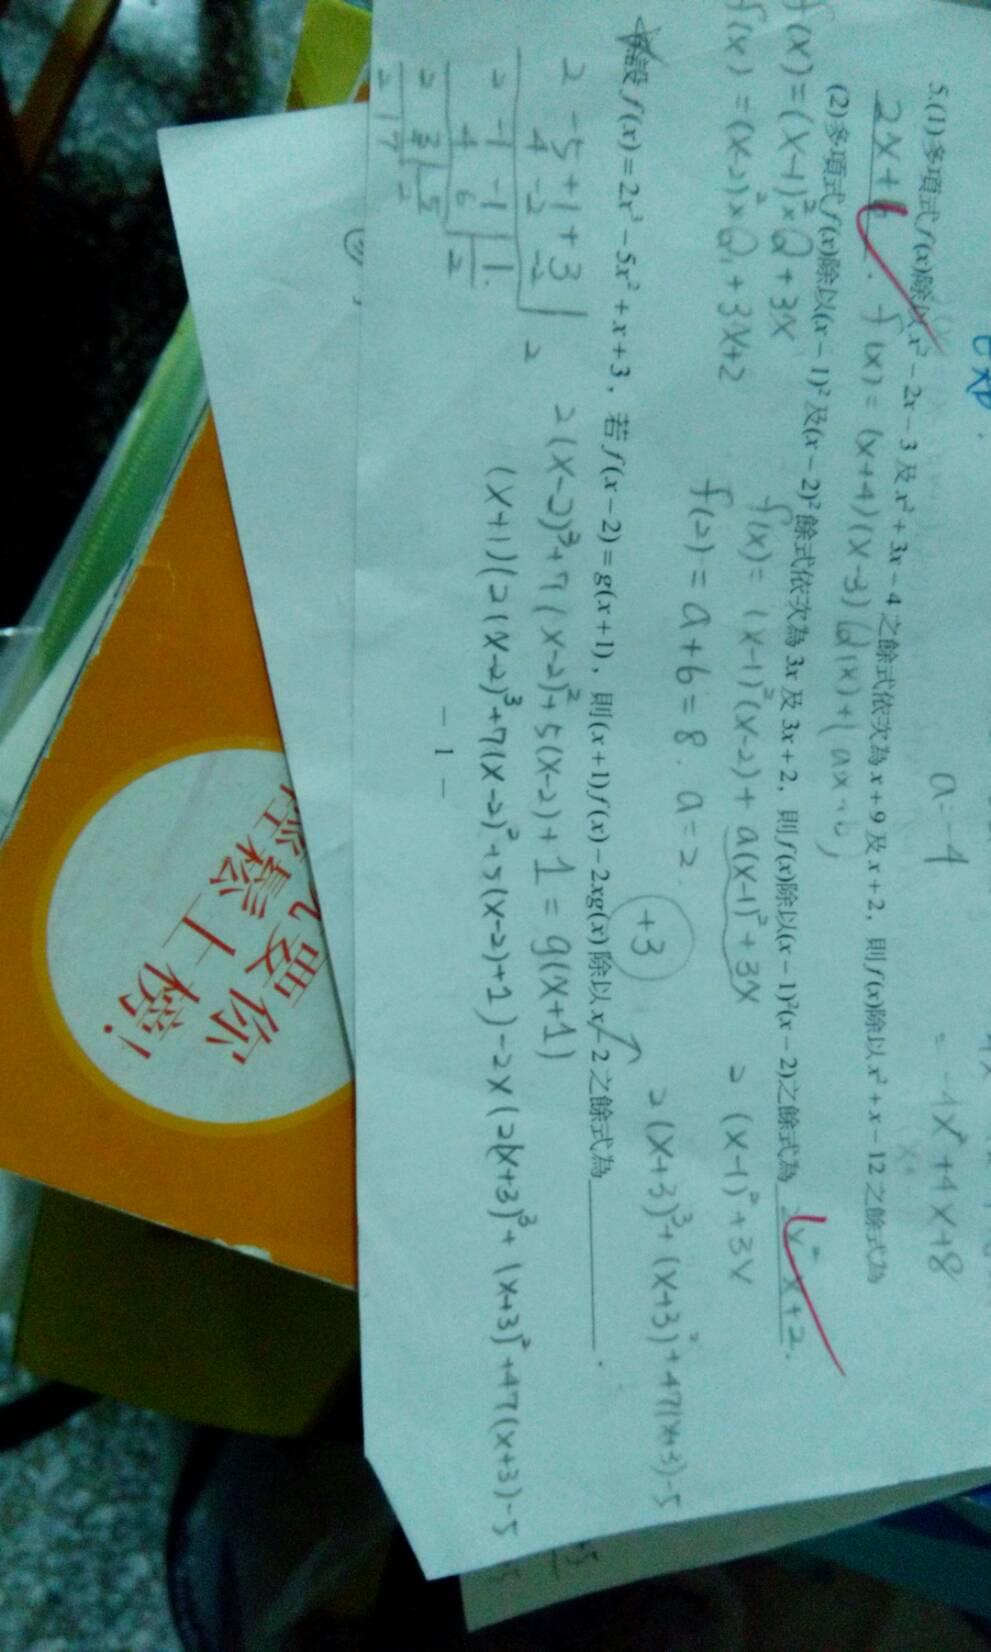 a=-4
= -4x²+4x+8
5.(1)多項式f(x)除以x²-2x-3及x²+3x-4之餘式依次為x+9及x+2，則f(x)除以x²+x-12之餘式為
2x+6. f(x)=(x+4)(x-3)Q(x)+(ax+b)
(2)多項式f(x)除以(x-1)²及(x-2)²餘式依次為3x及3x+2，則f(x)除以(x-1)²(x-2)之餘式為 x+2.
f(x)=(x-1)²×Q+3x
f(x)=(x-1)²(x-2)+a(x-1)²+3x
2(x-1)²+3x
f(x)=(x-2)²×Q₁+3x+2
f(2)=a+6=8. a=2.
+3
2(x+3)³+(x+3)²+47(x+3)-5
設f(x)=2x³-5x²+x+3，若f(x-2)=g(x+1)，則(x+1)f(x)-2xg(x)除以x-2之餘式為.
2 -5 +1 +3
4 -2 -2 2
2 -1 -1 1
4 6
2 3 5
2 7
2(x-2)³+7(x-2)²+5(x-2)+1=g(x+1)
(x+1)(2(x-2)³+7(x-2)²+5(x-2)+1)-2x(2(x+3)³+(x+3)²+47(x+3)-5
- 1 -
要你
鬆上榜!